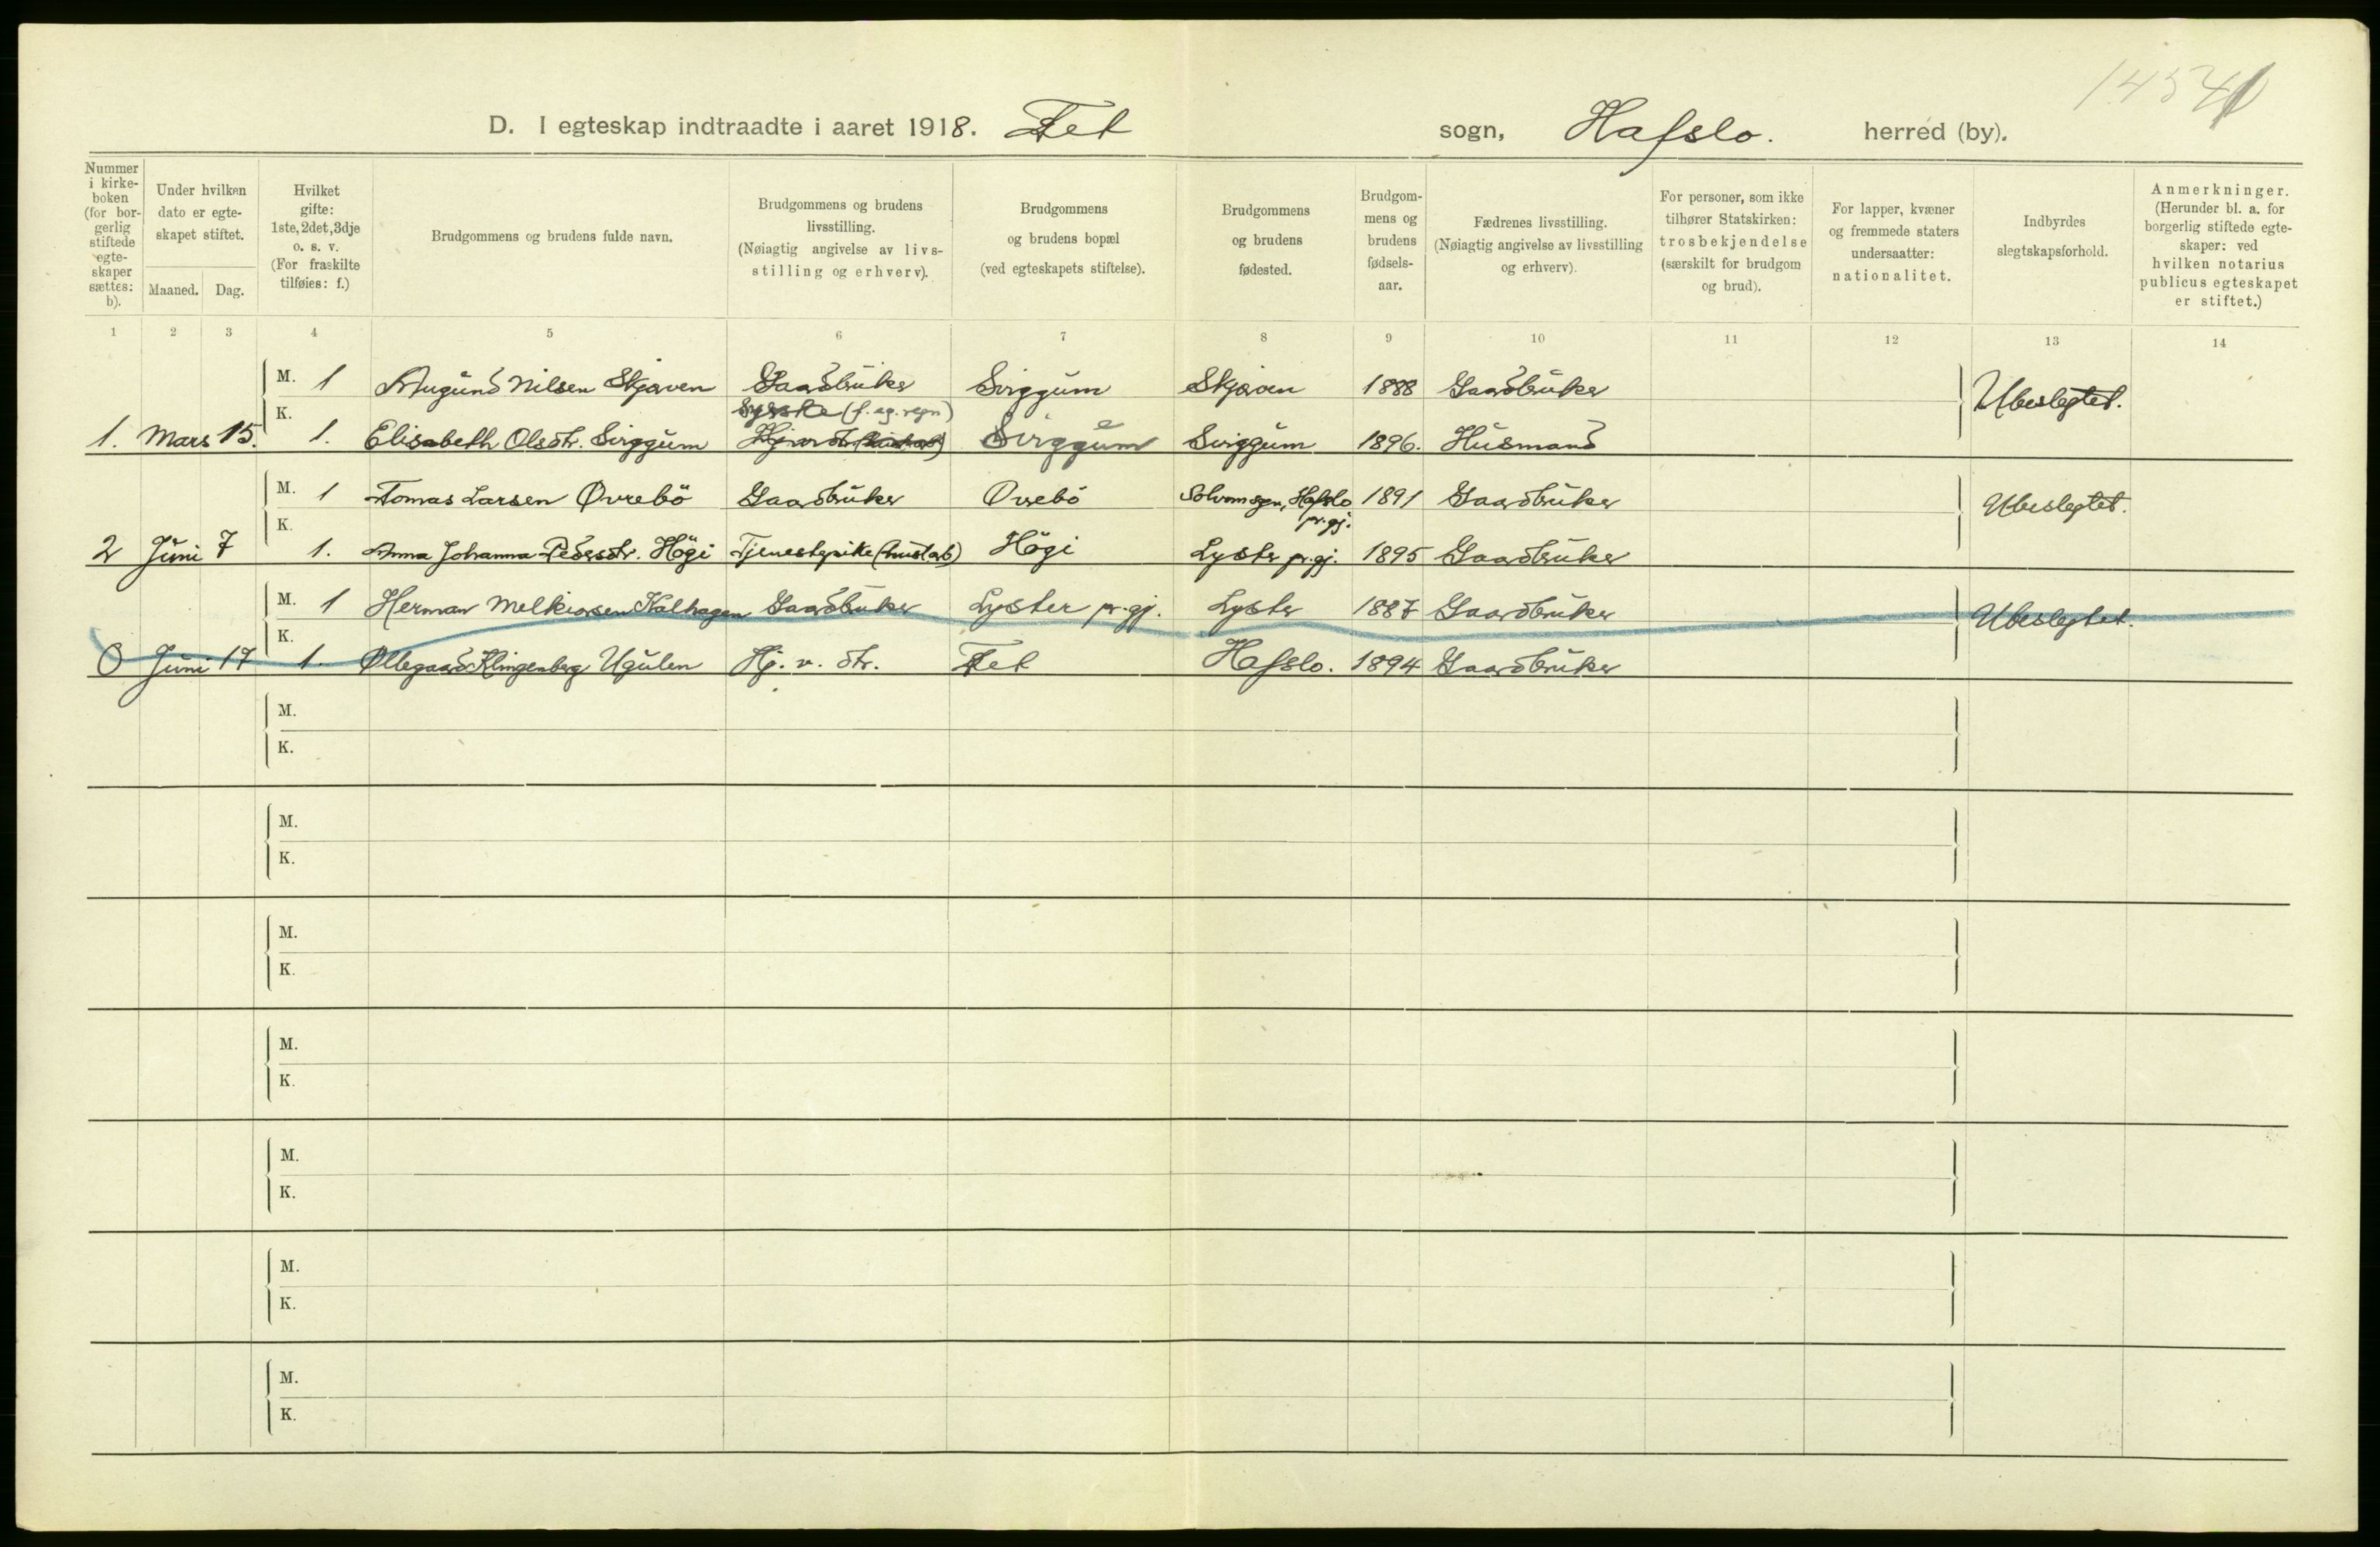 D. I egteskap indtraadte i aaret 1918. Fet sogn, Hafslo. herred (by).
Nummer i kirke-boken (for bor-gerlig stiftede egte-skaper sættes: b).
Under hvilken dato er egte-skapet stiftet.
Maaned. Dag.
Hvilket gifte: 1ste, 2det, 3dje o. s. v. (For fraskilte tilføies: f.)
Brudgommens og brudens fulde navn.
Brudgommens og brudens livsstilling. (Nøiagtig angivelse av livs-stilling og erhverv).
Brudgommens og brudens bopæl (ved egteskapets stiftelse).
Brudgommens og brudens fødested.
Brudgom-mens og brudens fødsels-aar.
Fædrenes livsstilling. (Nøiagtig angivelse av livsstilling og erhverv).
For personer, som ikke tilhører Statskirken: trosbekjendelse (særskilt for brudgom og brud).
For lapper, kvæner og fremmede staters undersaatter: nationalitet.
Indbyrdes slegtskapsforhold.
Anmerkninger. (Herunder bl. a. for borgerlig stiftede egte-skaper: ved hvilken notarius publicus egteskapet er stiftet.)
1 2 3 4 5 6 7 8 9 10 11 12 13 14
M. 1 Augund Nilsen Skjæven Gaardbruker Svrggum Skjæven 1888 Gaardbruker Ubeslegtet.
Syerske (f. eg. regn)
1. Mars 15. K. 1. Elisabeth Olsdtr. Svrggum 1896. Husmand
M. 1 Tomas Larsen Øvrebö Gaardbruker Ovrebö Solvornsogn, Hafslo pr.gj. 1891 Gaardbruker Ubeslegtet.
2 Juni 7 K. 1. Anna Johanna Pedersdtr. Högi Tjenestepike (husl. arb) Högi Lyster pr.gj. 1895 Gaardbruker
M. 1 Herman Melkiorsen Kalhagen Gaardbruker Lyster pr.gj. Lyster 1887 Gaardbruker Ubeslegtet.
0 Juni 17 K. 1. Ollegaard Klingenberg Ugulen Hj. v. dtr. Fet Hafslo. 1894 Gaardbruker
M.
K.
M.
K.
M.
K.
M.
K.
M.
K.
M.
K.
M.
K.